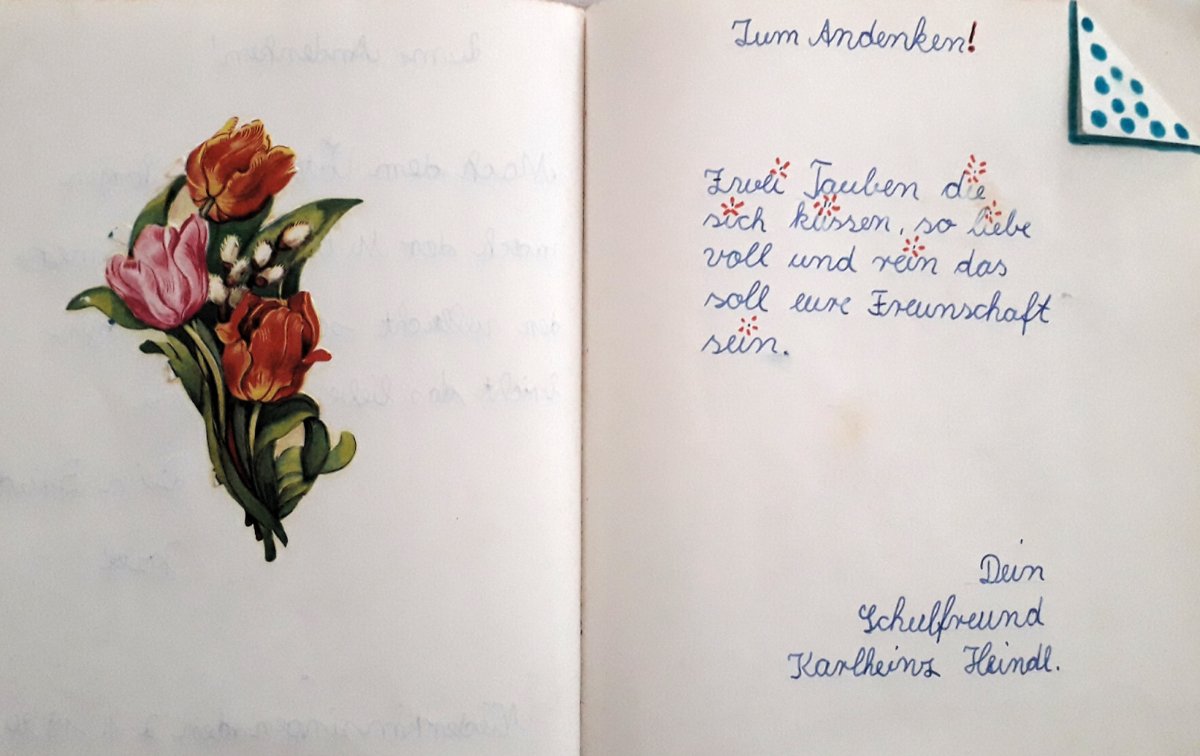 Zum Andenken!
Zwei Tauben die
sich küssen, so liebe
voll und rein das
soll eure Freunschaft
sein.
Dein
Schulfreund
Karlheinz Heindl.